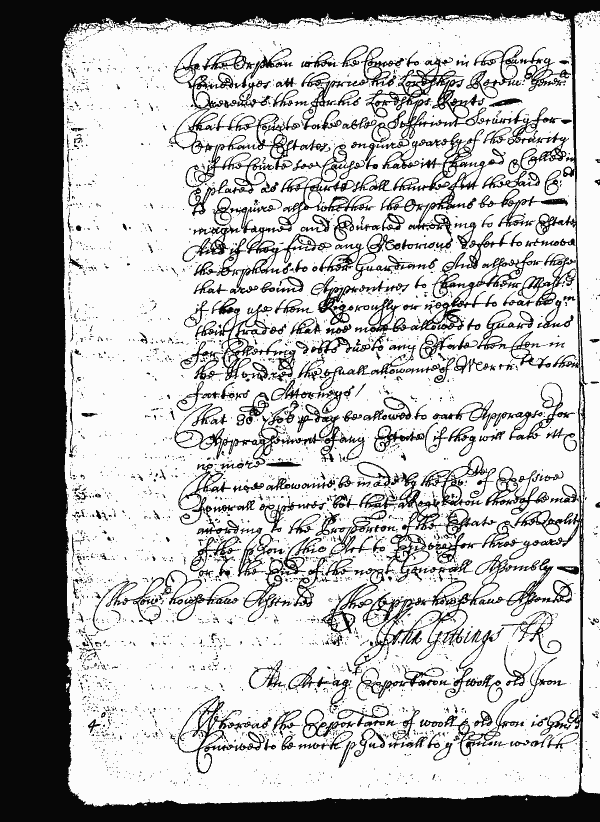 to the Orphan when he Comes to age in the Country
Comodityes att the price his Lordships Receivr Generll
Receives them for his Lordships Rents
That the Courts take able & Sufficient Security for
Orphans Estates & enquire yearely of the Security
& if the Courts see Cause to have itt Changed & Called in
& placed as the Courts shall thinke fitt the said Cort
to Enquire also whether the Orphans be kept
maintayned and Educated according to their Estate
And if they finde any Notorious defect to remove
the Orphans to other Guardians And alsoe for those
that are bound Apprentices to Change their Mastrs
if they use them Rigorously or neglect to teach them
their trades that noe more be allowed to Guardians
for Collecting debts due to any Estate then Ten in
the Hundred the usuall allowance of Merchts to their
factors & Attorneys
That p day be allowed to each Appraysor for
Appraysement of any Estate (if they will take itt &
no more
That noe allowance be made by the of Excessive
Funerall expences but that Alegation thereof be made
according to the Proporton of the Estate & the Quality
of the pson This Act to Endure for three yeares
or to the End of the next Generall Assembly
The Lowr howse have Assented The Upper howse have Assented
John Gittings Clk
An Act agt Exportacon of wooll & old Iron
4o Whereas the Exportacon of wooll & old Iron is
Conceived to be much pjudiciall to ye Comon wealth